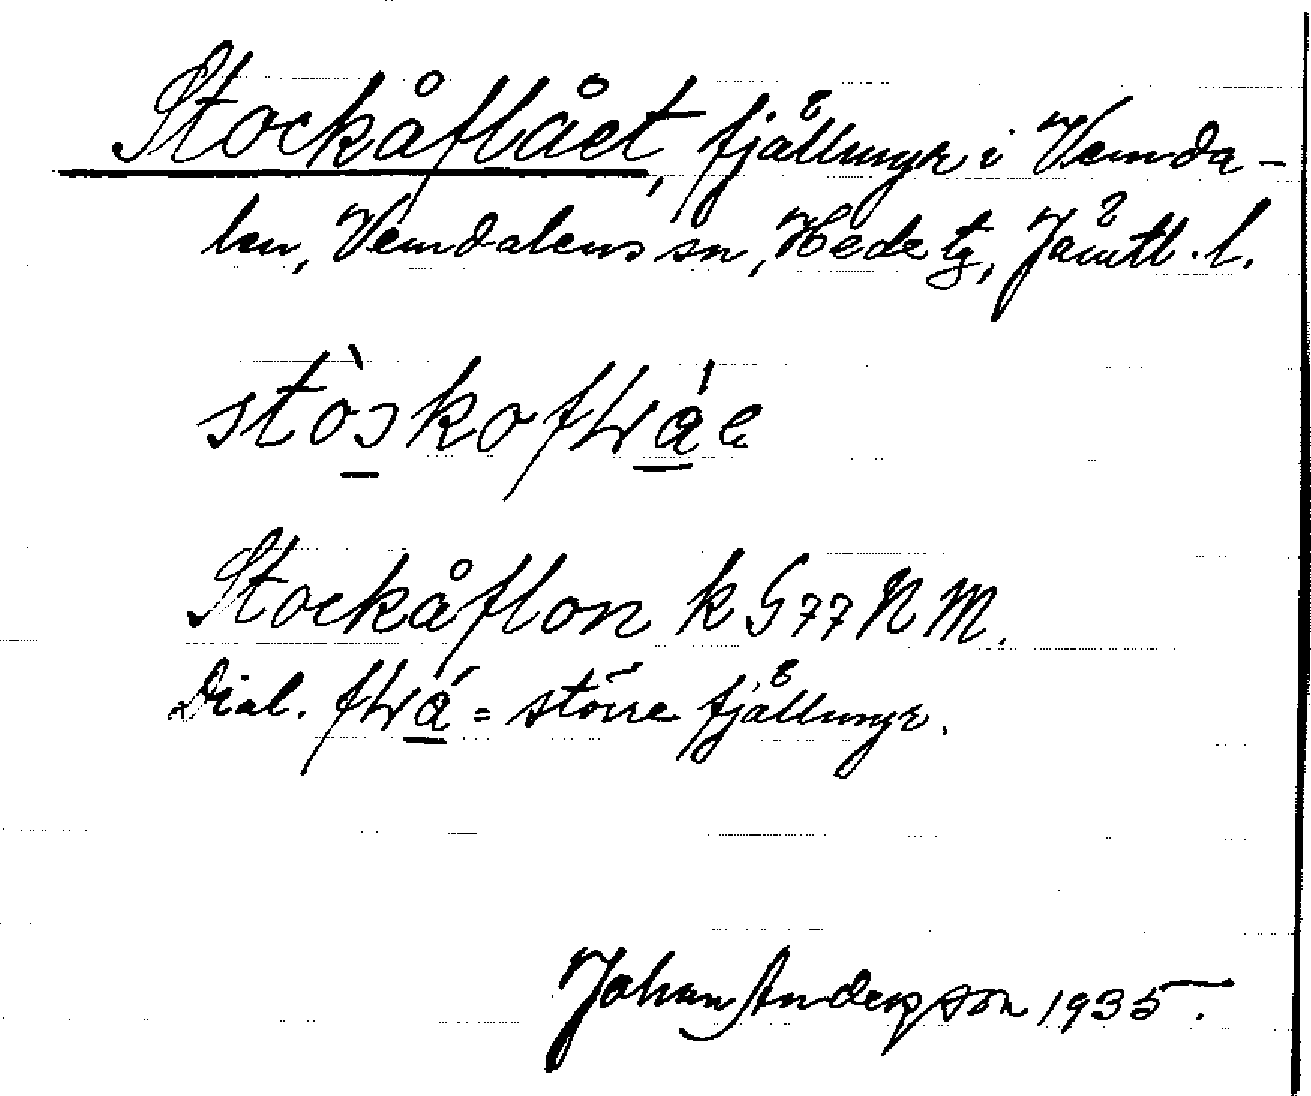 Stockåflået, fjällmyr i Vemda-
len, Vemdalens sn, Hede tg, Jämtl. l.
Stockåflon k G 77 N M.
Dial. = större fjällmyr.
Johan Anderson 1935.